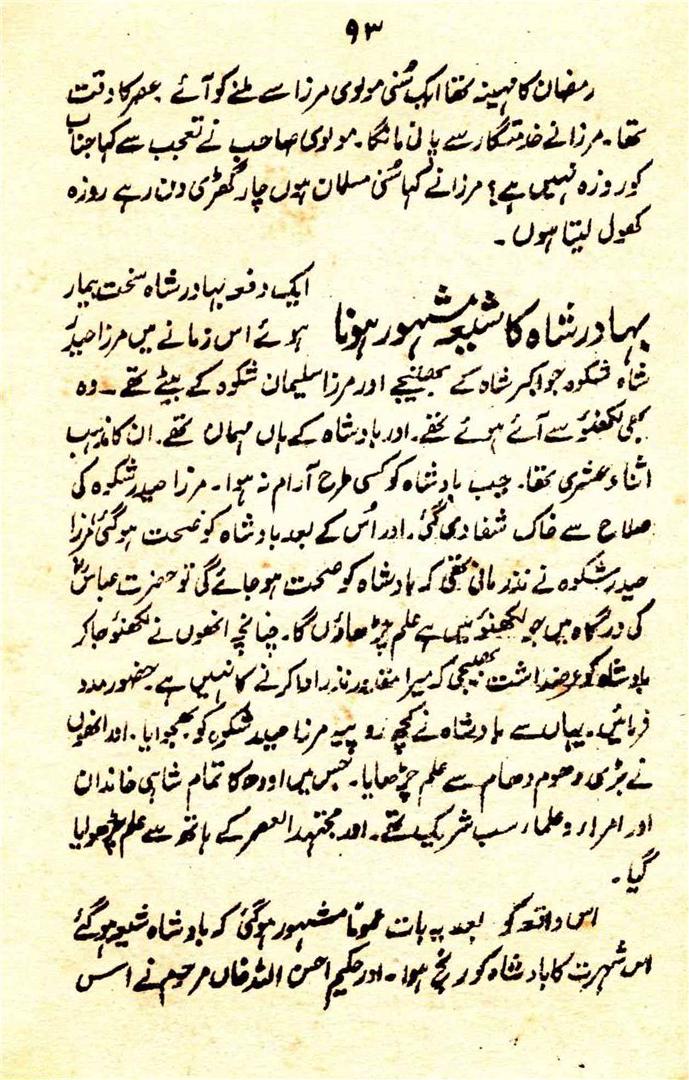 ۹۳
رمضان کا مہینہ تھا ایک سُنی مولوی مرزا سے ملنے کو آئے عصر کا وقت
تھا۔ مرزا نے خدمتگار سے پانی مانگا۔ مولوی صاحب نے تعجب سے کہا جناب
کو روزہ نہیں ہے؟ مرزا نے کہا سُنی مسلمان ہوں چار گھڑی دن رہے روزہ
کھول لیتا ہوں۔
ایک دفعہ بہادر شاہ سخت بیمار
بہادر شاہ کا شیعہ مشہور ہونا
ہوئے اس زمانے میں مرزا حیدر
شاہ شکوہ جو اکبر شاہ کے بھتیجے اور مرزا سلیمان شکوہ کے بیٹے تھے۔ وہ
بھی لکھنؤ سے آئے ہوئے تھے۔ اور بادشاہ کے ہاں مہمان تھے۔ ان کا مذہب
اثناء عشری تھا۔ جب بادشاہ کو کسی طرح آرام نہ ہوا۔ مرزا حیدر شکوہ کی
صلاح سے خاک شفا دی گئی۔ اور اُس کے بعد بادشاہ کو صحت ہو گئی مرزا
حیدر شکوہ نے نذر مانی تھی کہ بادشاہ کو صحت ہو جائے گی تو حضرت عباسؓ
کی درگاہ میں جو لکھنؤ میں ہے علم چڑھاؤں گا۔ چنانچہ انھوں نے لکھنؤ جا کر
بادشاہ کو عرضداشت بھیجی کہ میرا مقدور نذر ادا کرنے کا نہیں ہے۔ حضور مدد
فرمائیں۔ یہاں سے بادشاہ نے کچھ روپیہ مرزا حیدر شکوہ کو بھجوایا۔ اور انھوں
نے بڑی دھوم دھام سے علم چڑھایا۔ جس میں اودھ کا تمام شاہی خاندان
اور امراء و علماء سب شریک تھے۔ اور مجتہد العصر کے ہاتھ سے علم چڑھوایا
گیا۔
اس واقعہ کو بعد یہ بات عموماً مشہور ہو گئی کہ بادشاہ شیعہ ہو گئے
اس شہرت کا بادشاہ کو رنج ہوا۔ اور حکیم احسن اللہ خاں مرحوم نے اس